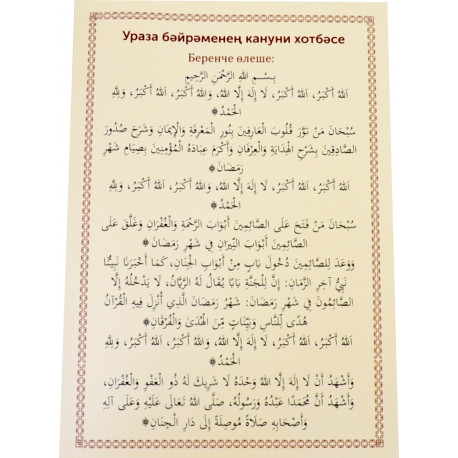 Ураза бәйрәменең кануни хотбәсе
Беренче өлеше:
بِسْمِ اللهِ الرَّحْمٰنِ الرَّحِيمِ
اَللهُ أَكْبَرُ، اَللهُ أَكْبَرُ، لَا إِلَهَ إِلَّا اللهُ، وَاللهُ أَكْبَرُ، اَللهُ أَكْبَرُ، وَلِلَّهِ
الْحَمْدُ ۞
سُبْحَانَ مَنْ نَوَّرَ قُلُوبَ الْعَارِفِينَ بِنُورِ الْمَعْرِفَةِ وَالْإِيمَانِ وَشَرَحَ صُدُورَ
الصَّادِقِينَ بِشَرْحِ الْهِدَايَةِ وَالْعِرْفَانِ وَأَكْرَمَ عِبَادَهُ الْمُؤْمِنِينَ بِصِيَامِ شَهْرِ
رَمَضَانَ ۞
اَللهُ أَكْبَرُ، اَللهُ أَكْبَرُ، لَا إِلَهَ إِلَّا اللهُ، وَاللهُ أَكْبَرُ، اَللهُ أَكْبَرُ، وَلِلَّهِ
الْحَمْدُ ۞
سُبْحَانَ مَنْ فَتَحَ عَلَى الصَّائِمِينَ أَبْوَابَ الرَّحْمَةِ وَالْغُفْرَانِ وَغَلَّقَ عَلَى
الصَّائِمِينَ أَبْوَابَ النِّيرَانِ فِي شَهْرِ رَمَضَانَ ۞
وَوَعَدَ لِلصَّائِمِينَ دُخُولَ بَابٍ مِنْ أَبْوَابِ الْجِنَانِ، كَمَا أَخْبَرَنَا نَبِيُّنَا
نَبِيُّ آخِرِ الزَّمَانِ: إِنَّ لِلْجَنَّةِ بَابًا يُقَالُ لَهُ الرَّيَّانُ، لَا يَدْخُلُهُ إِلَّا
الصَّائِمُونَ فِي شَهْرِ رَمَضَانَ: شَهْرُ رَمَضَانَ الَّذِي أُنْزِلَ فِيهِ الْقُرْآنُ
هُدًى لِلنَّاسِ وَبَيِّنَاتٍ مِّنَ الْهُدَىٰ وَالْفُرْقَانِ ۞
اَللهُ أَكْبَرُ، اَللهُ أَكْبَرُ، لَا إِلَهَ إِلَّا اللهُ، وَاللهُ أَكْبَرُ، اَللهُ أَكْبَرُ، وَلِلَّهِ
الْحَمْدُ ۞
وَأَشْهَدُ أَنْ لَا إِلَهَ إِلَّا اللهُ وَحْدَهُ لَا شَرِيكَ لَهُ ذُو الْعَفْوِ وَالْغُفْرَانِ،
وَأَشْهَدُ أَنَّ مُحَمَّدًا عَبْدُهُ وَرَسُولُهُ، صَلَّى اللهُ تَعَالَى عَلَيْهِ وَعَلَى آلِهِ
وَأَصْحَابِهِ صَلَاةً مُوصِلَةً إِلَى دَارِ الْجِنَانِ ۞